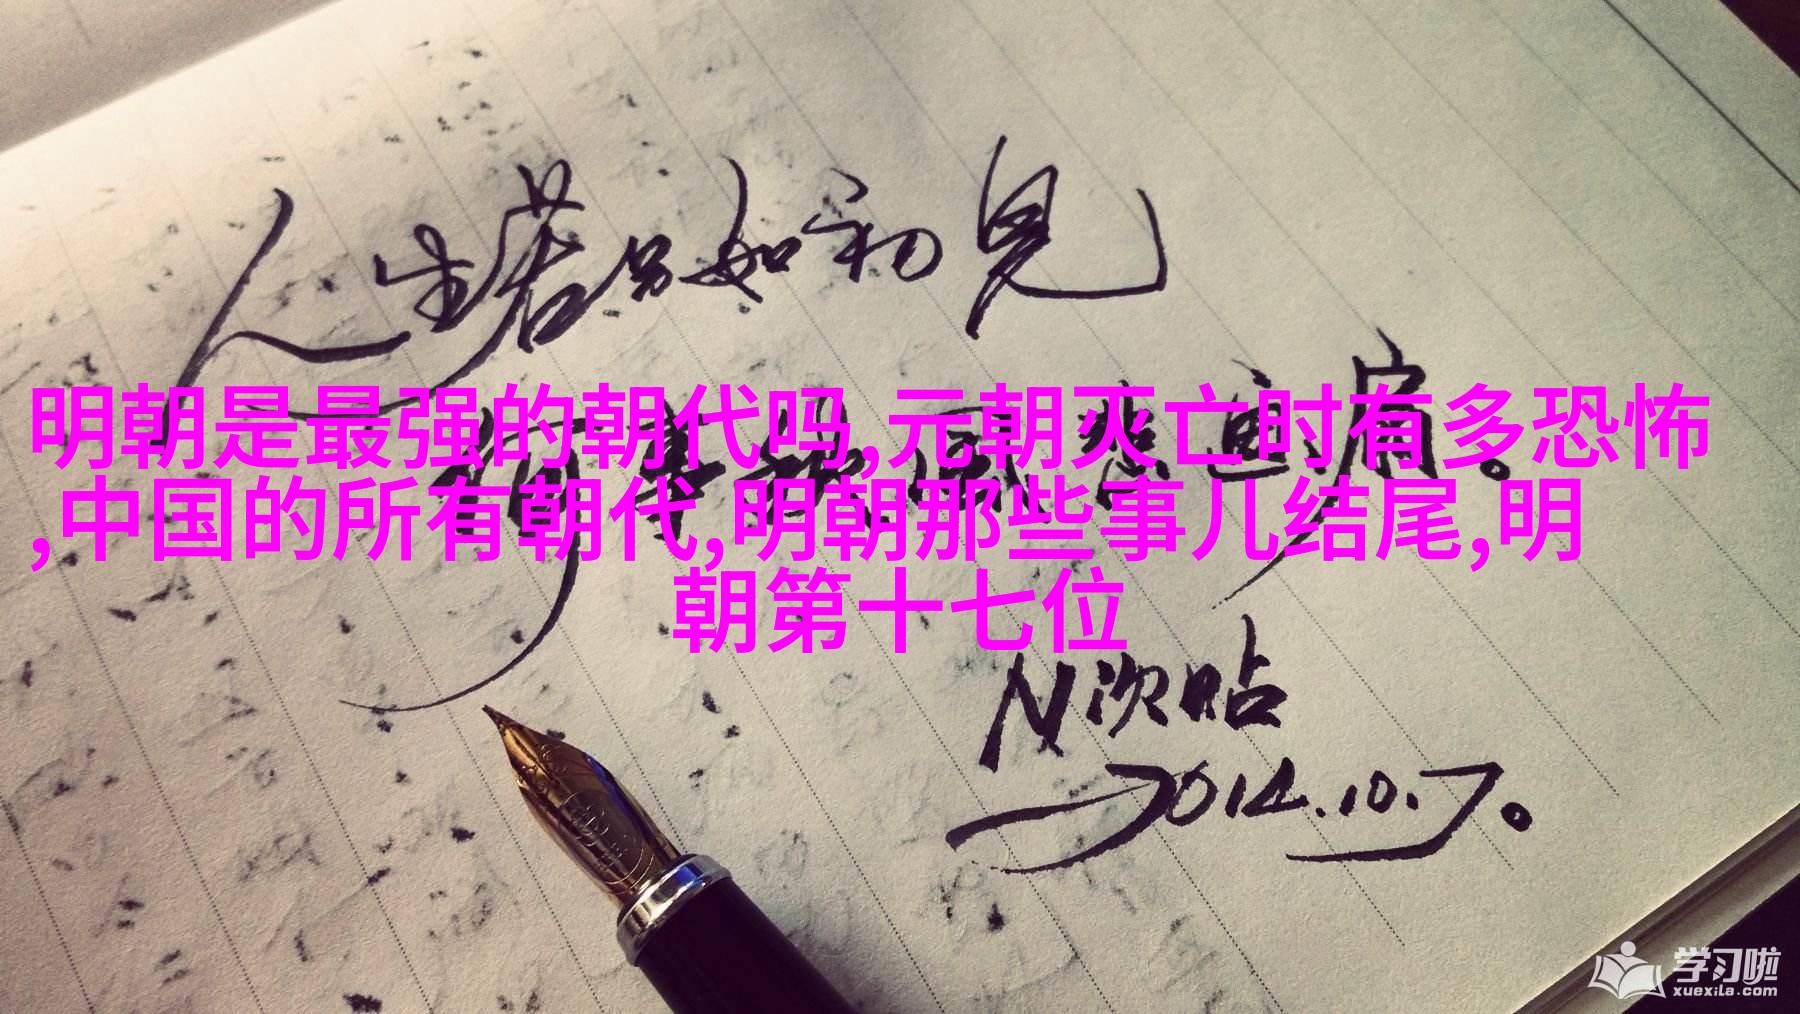 人生若只如初见
何事秋风悲画扇。
明朝是最强的朝代吗,元朝灭亡时有多恐怖
,中国的所有朝代,明朝那些事儿结尾,明
朝第十七位
N次贴
2014.10.7。
学习啦
xuexila.com